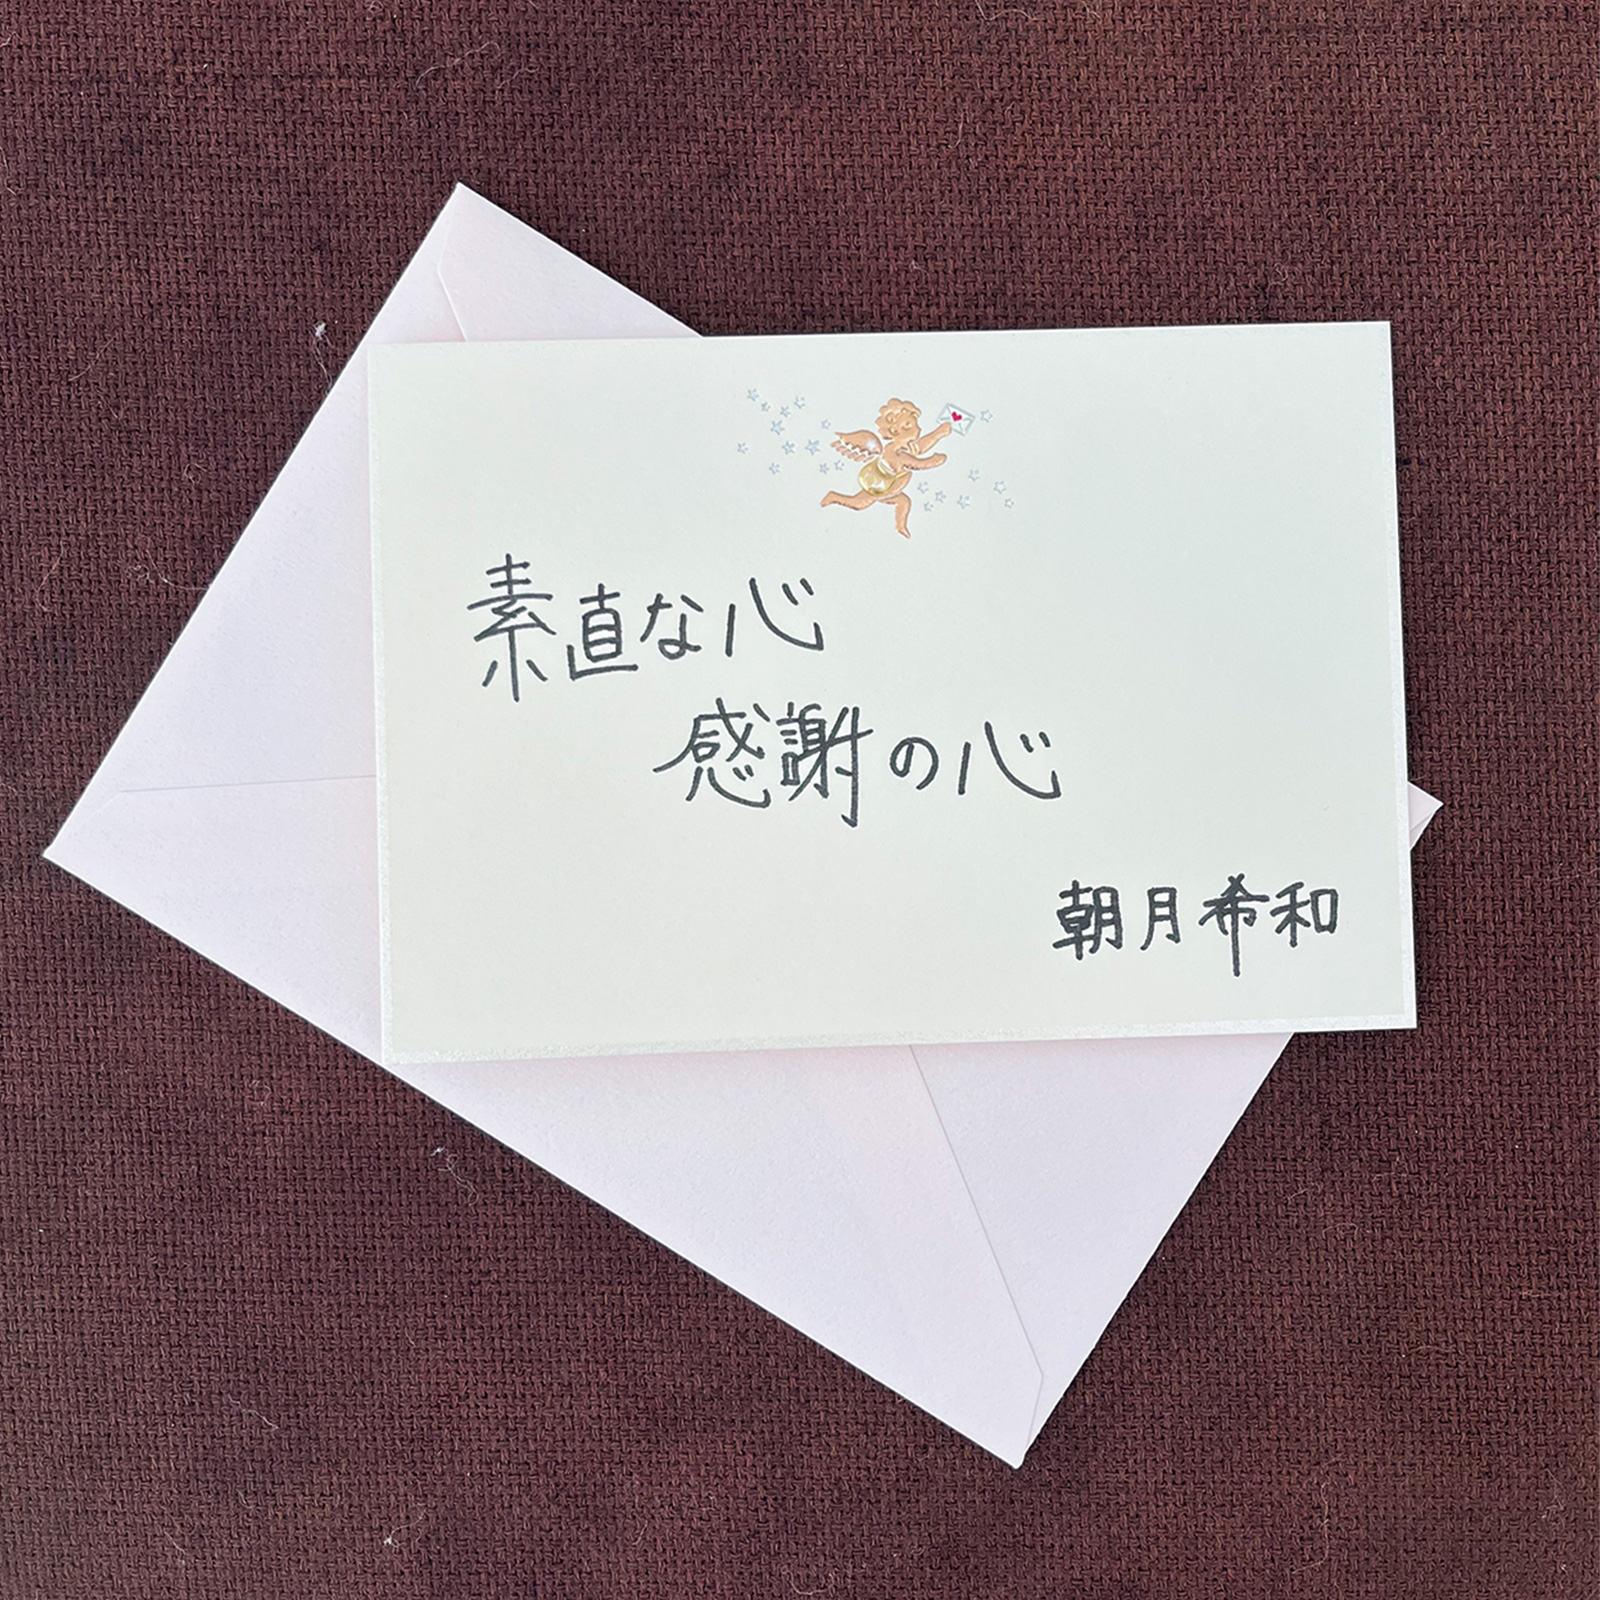 素直な心
感謝の心
朝月希和